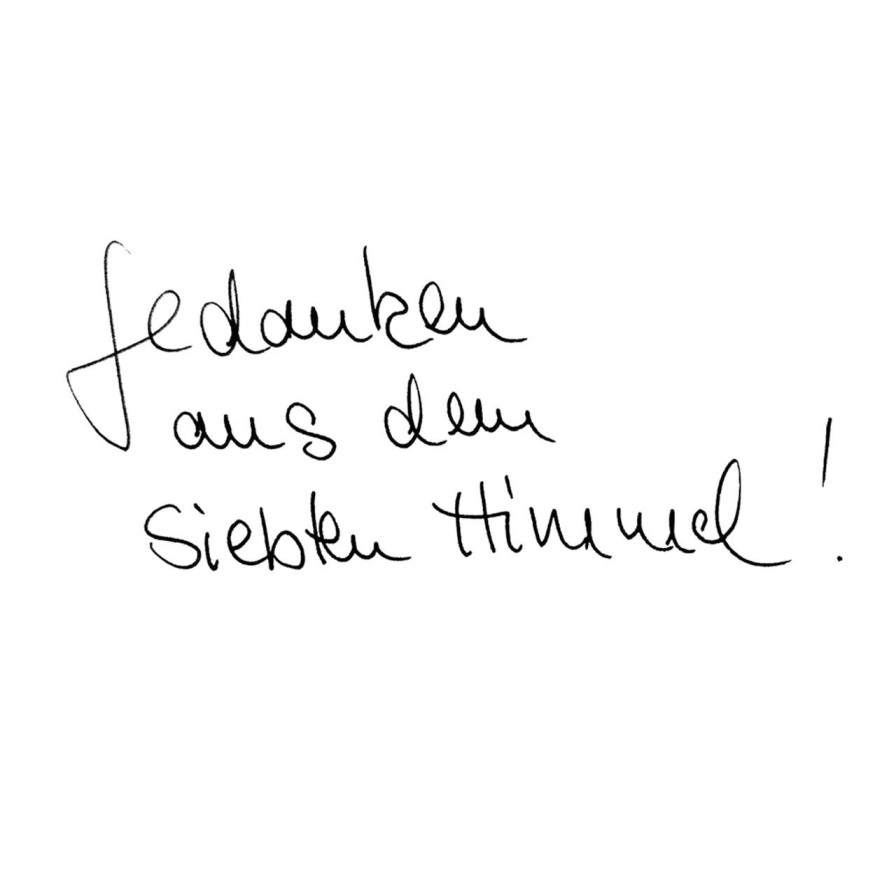 Gedanken
aus dem
siebten Himmel!